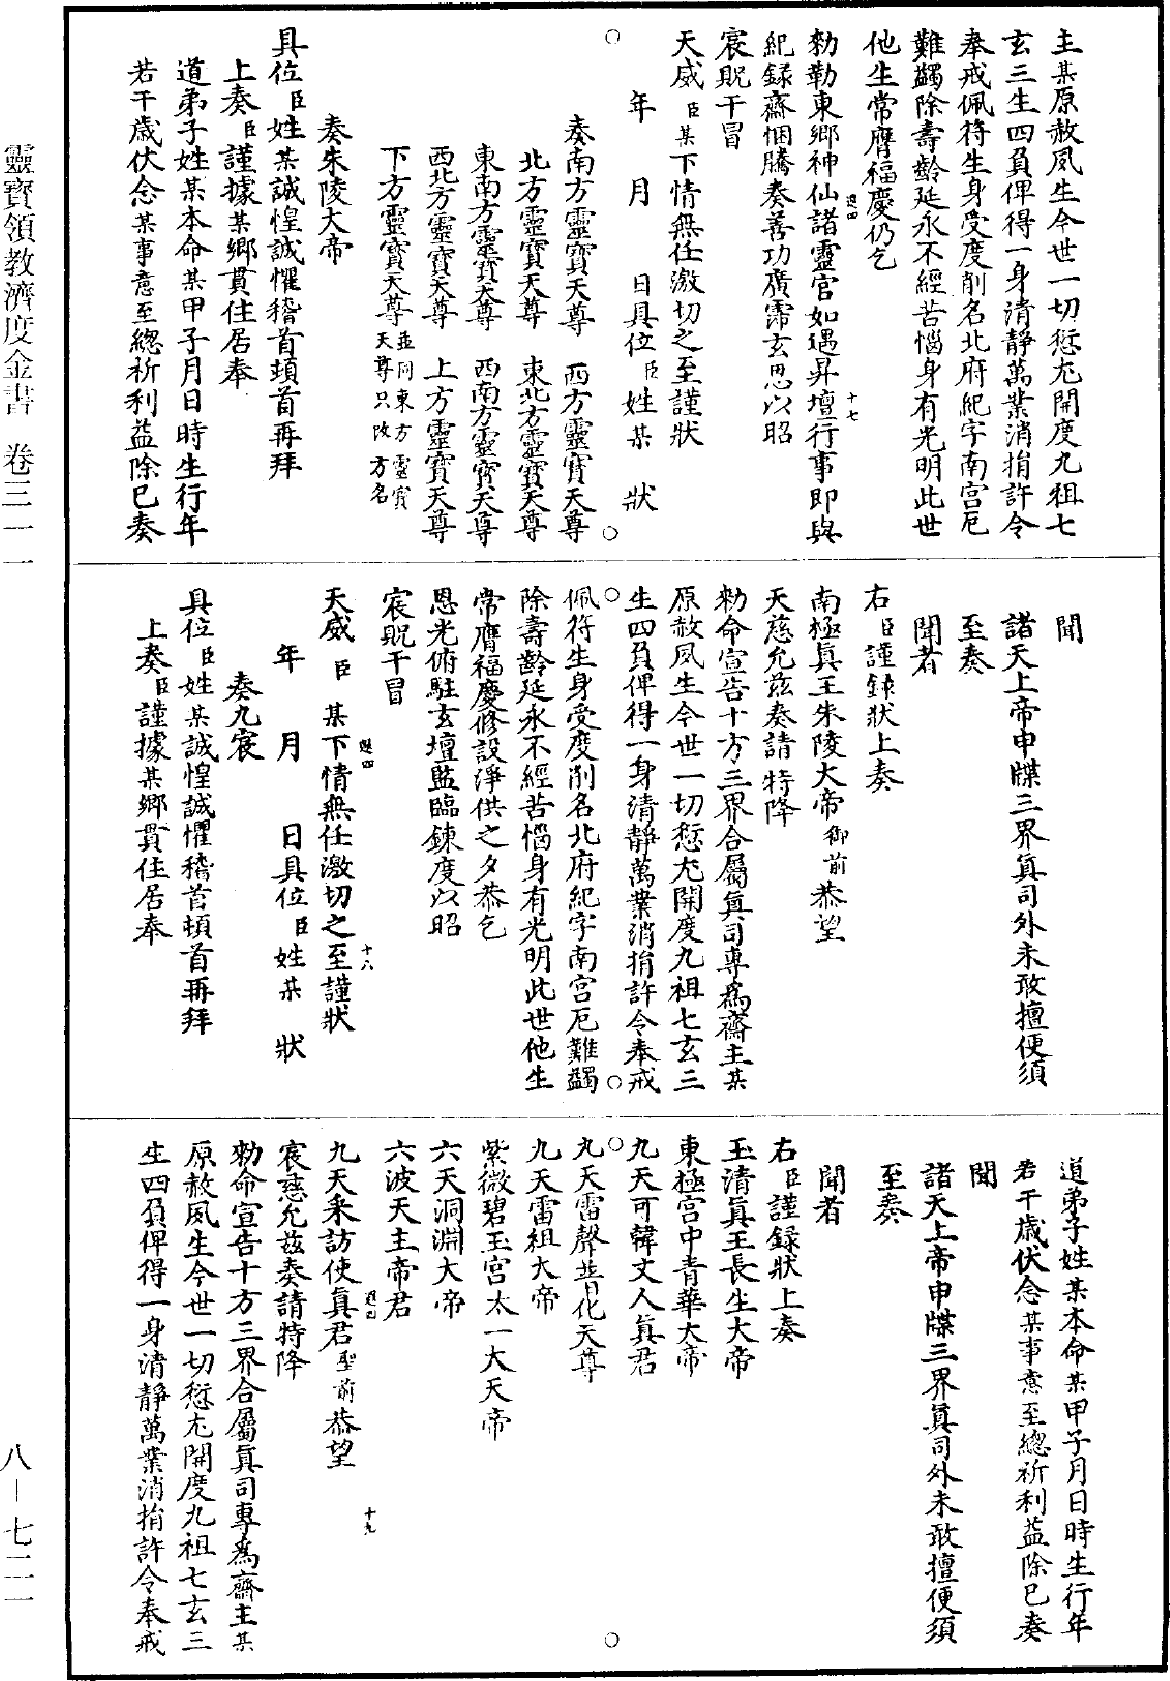 主某原赦夙生今世一切愆尤開度九祖七
玄三生四負俾得一身清靜萬業消捐許令
奉戒佩符生身受度削名北府紀字南宫厄
難蠲除壽齡延永不經苦惱身有光明此世
他生常膺福慶仍乞
勑勒東鄉神仙諸靈官如遇昇壇行事即與
紀録齋悃騰奏善功廣霈玄恩以昭
宸貺干冒
天威臣某下情無任激切之至謹狀
年　月　日具位臣姓某　狀
奏南方靈寳天尊　西方靈寳天尊
北方靈寳天尊　東北方靈寳天尊
東南方靈寳天尊　西南方靈寳天尊
西北方靈寳天尊　上方靈寳天尊
下方靈寳天尊並同東方靈寳天尊只改方名
奏朱陵大帝
具位臣姓某誠惶誠懼稽首頓首再拜
上奏臣謹據某鄉貫住居奉
道弟子姓某本命某甲子月日時生行年
若干歲伏念某事意至總祈利益除已奏
聞
諸天上帝申牒三界真司外未敢擅便須
至奏
聞者
右臣謹録狀上奏
南極真王朱陵大帝御前恭望
天慈允兹奏請特降
勑命宣告十方三界合屬真司專爲齋主某
原赦夙生今世一切愆尤開度九祖七玄三
生四負俾得一身清靜萬業消捐許令奉戒
佩符生身受度削名北府紀字南宫厄難蠲
除壽齡延永不經苦惱身有光明此世他生
常膺福慶修設淨供之夕恭乞
恩光俯駐玄壇監臨鍊度以昭
宸貺干冒
天威臣某下情無任激切之至謹狀
年　月　日具位臣姓某　狀
奏九宸
具位臣姓某誠惶誠懼稽首頓首再拜
上奏臣謹據某鄉貫住居奉
道弟子姓某本命某甲子月日時生行年
若干歲伏念某事意至總祈利益除已奏
聞
諸天上帝申牒三界真司外未敢擅便須
至奏
聞者
右臣謹録狀上奏
玉清真王長生大帝
東極宫中青華大帝
九天可韓丈人真君
九天雷聲普化天尊
九天雷祖大帝
紫微碧玉宫太一大天帝
六天洞淵大帝
六波天主帝君
九天采訪使真君聖前恭望
宸慈允兹奏請特降
勑命宣告十方三界合屬真司專爲齋主某
原赦夙生今世一切愆尤開度九祖七玄三
生四負俾得一身清靜萬業消捐許令奉戒
十七
十八
十九
靈寶領教濟度金書　卷三一一
八－七二一